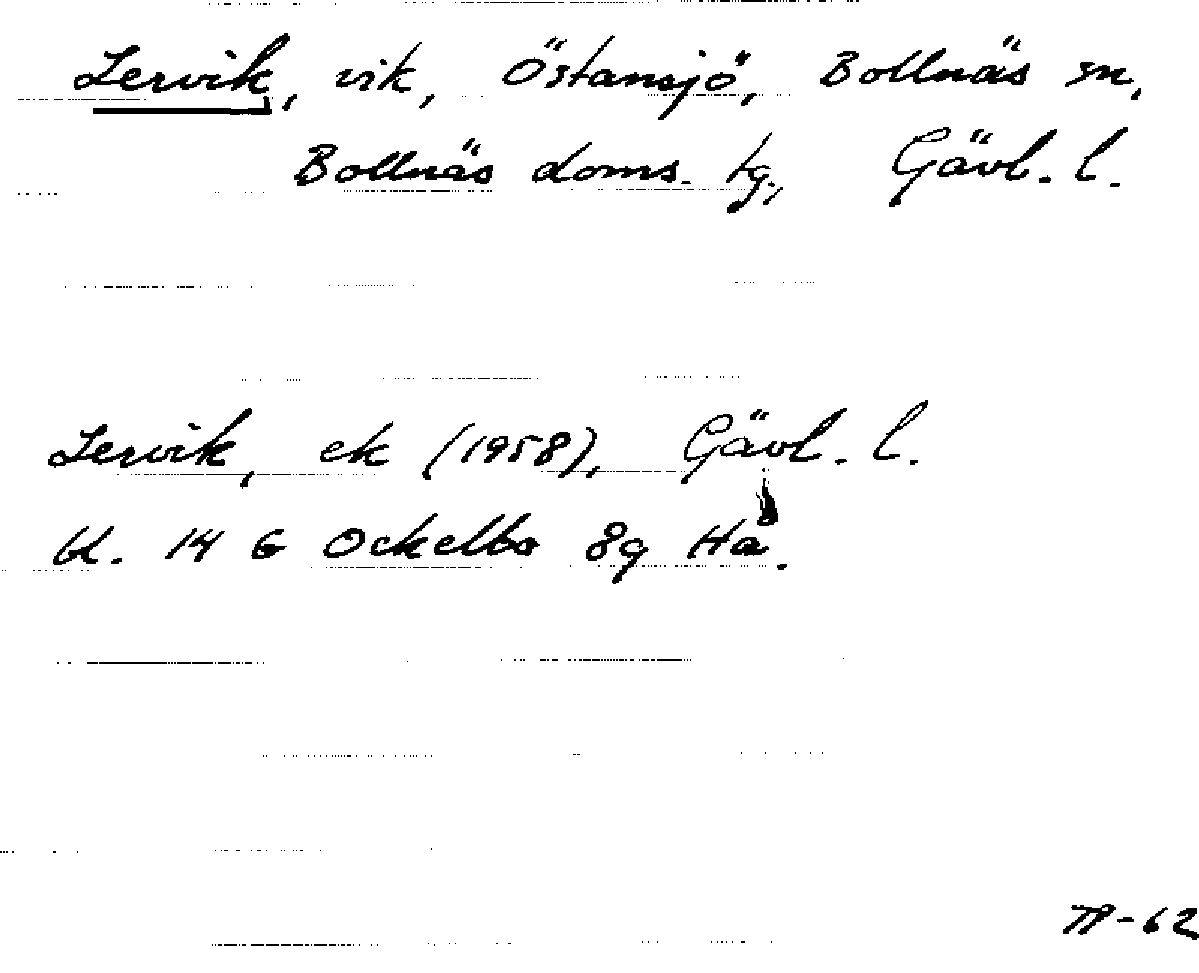 Lervik, vik, Östansjö, Bollnäs sn,
Bollnäs doms. tg., Gävl. l.
Lervik, ek (1958), Gävl. l.
bl. 14 G Ockelbo 8g Ha.
TP-62